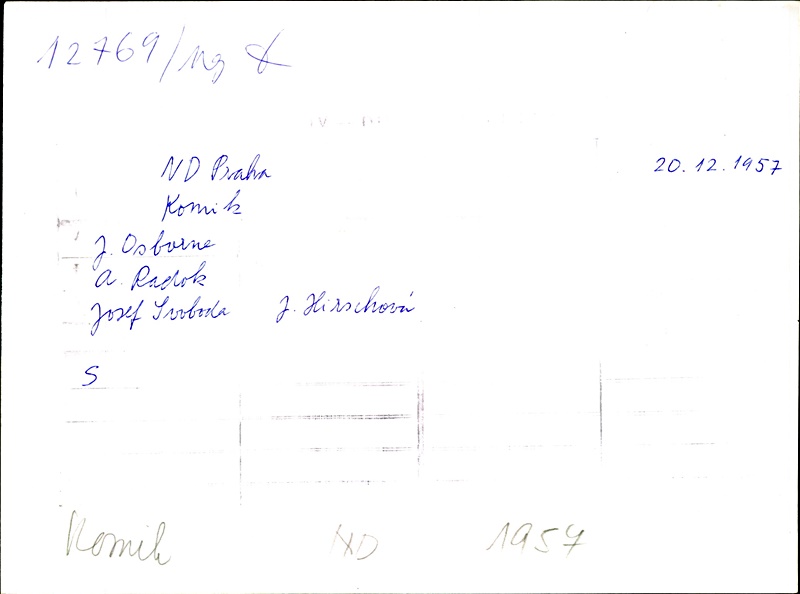 12769/ng
ND Praha 20.12.1957
Komik
J. Osborne
A. Radok
Josef Svoboda J. Hirschová
S
Komik ND 1957